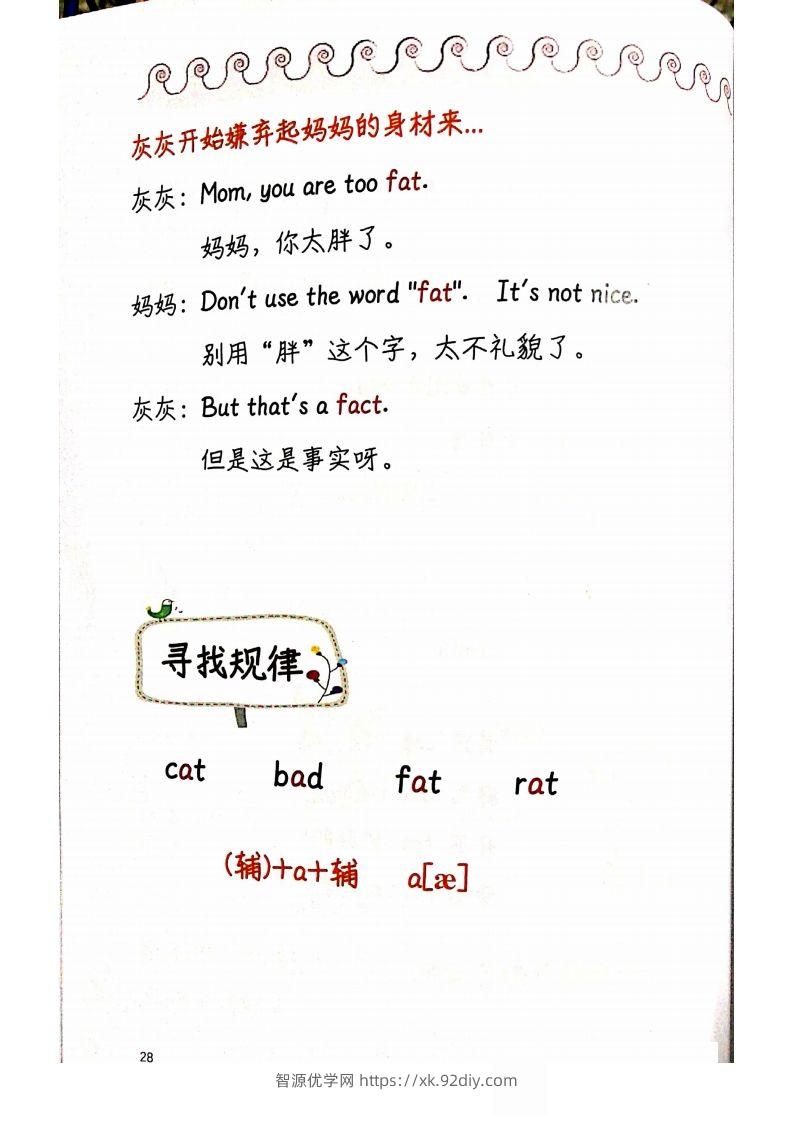 灰灰开始嫌弃起妈妈的身材来...
灰灰：Mom, you are too fat.
妈妈，你太胖了。
妈妈：Don't use the word "fat". It's not nice.
别用“胖”这个字，太不礼貌了。
灰灰：But that's a fact.
但是这是事实呀。
寻找规律
cat bad fat rat
(辅)+a+辅 a[æ]
28
智源优学网 https://xk.92diy.com